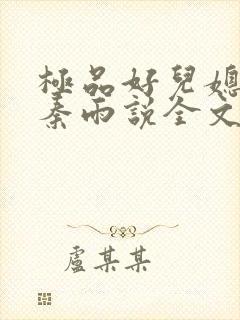 極品好兒媳
秦雨説全文
盧某某